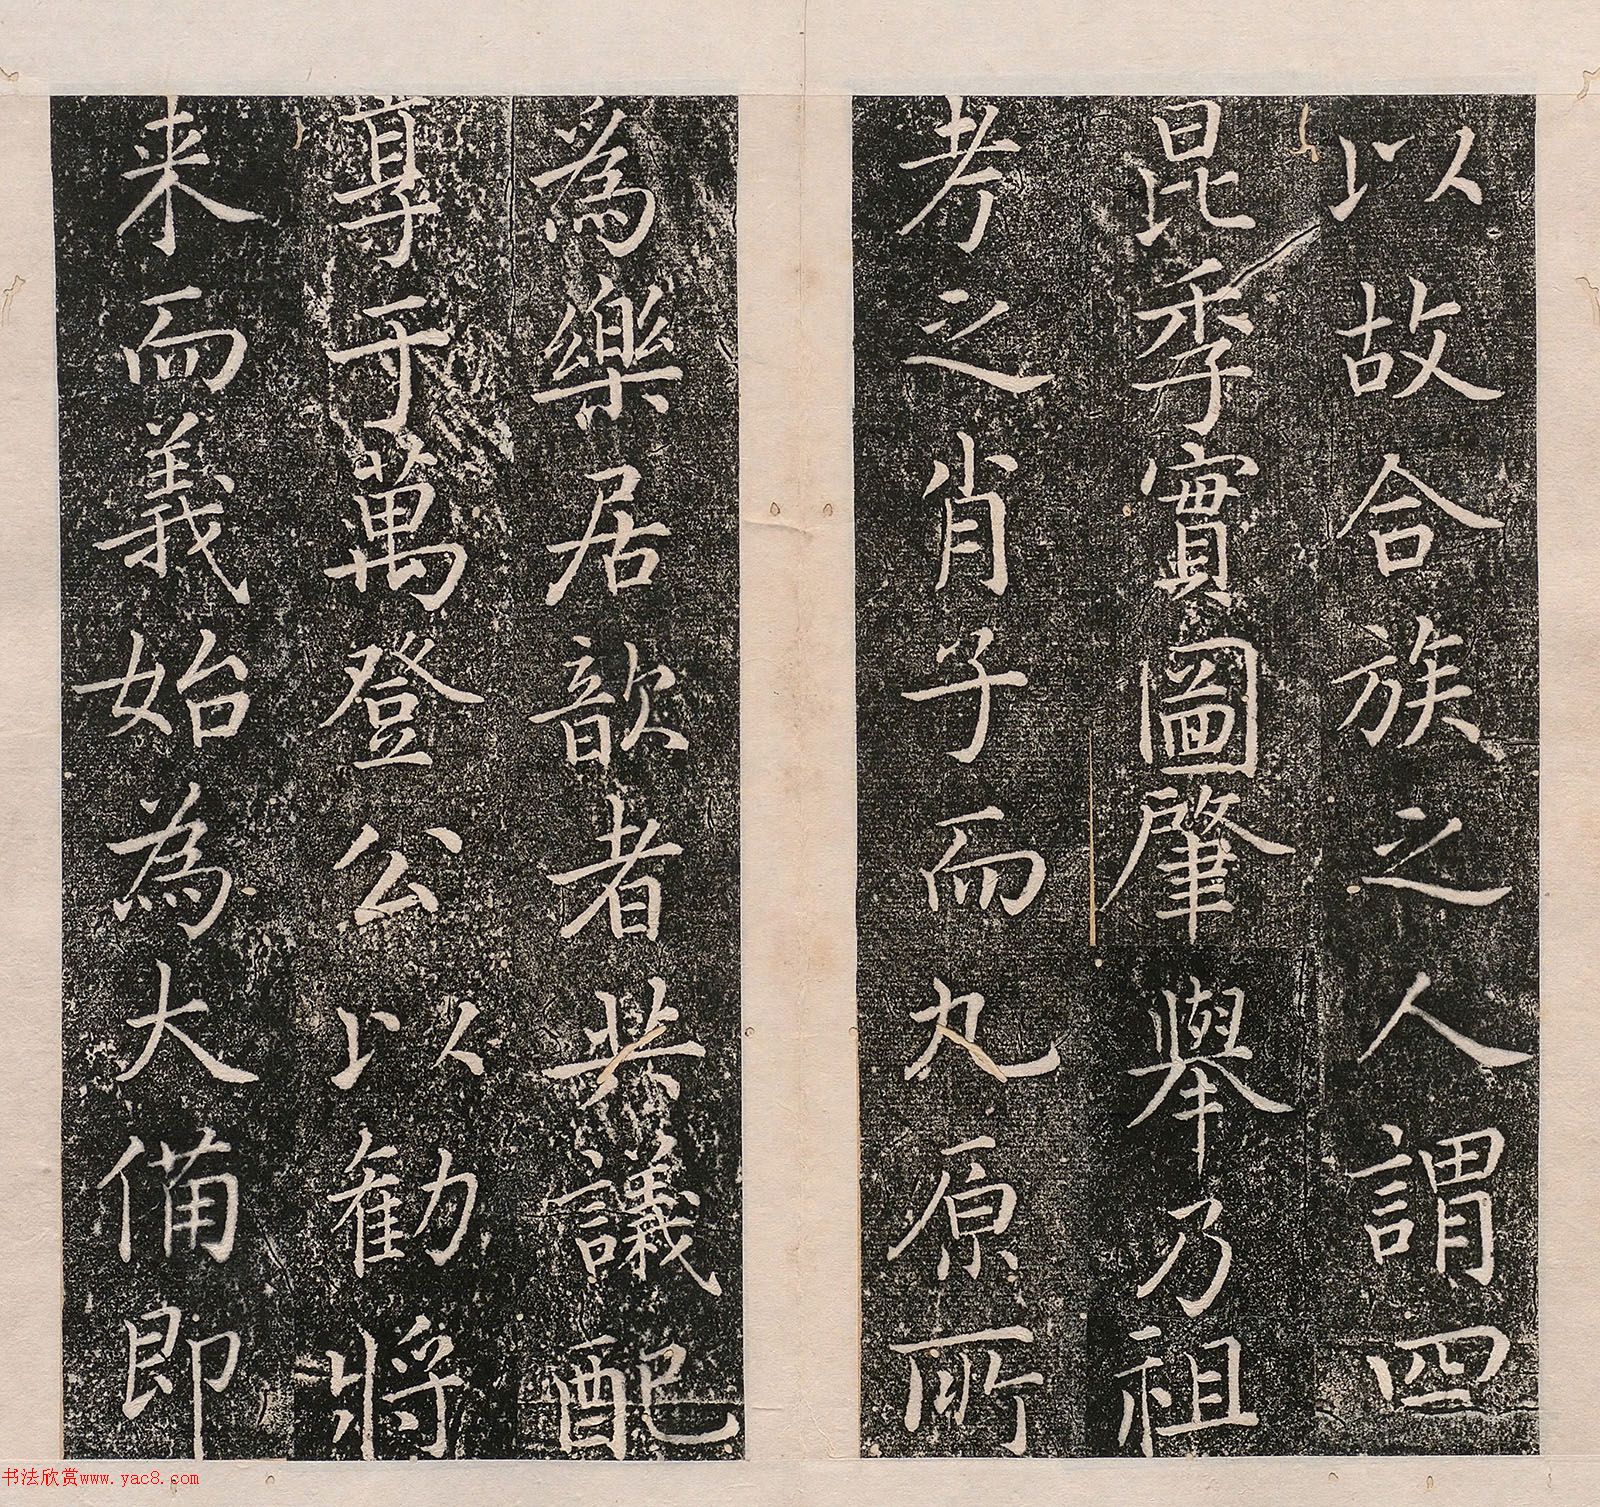 以故合族之人謂四
昆季實圖肈舉乃祖
考之肖子而丸原所
為樂居歆者共議配
享于萬登公以勸將
来而義始為大備即
书法欣赏www.yac8.com